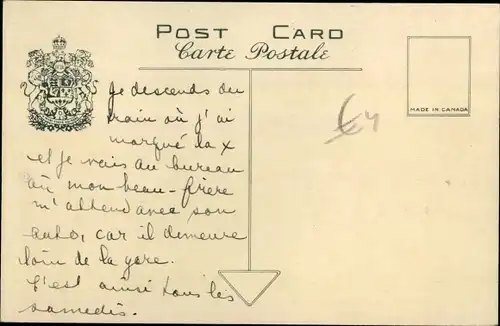 POST CARD
Carte Postale
MADE IN CANADA
€4
Je descends du
train où j'ai
marqué la x
et je vais au bureau
où mon beau-frère
m'attend avec son
auto, car il demeure
loin de la gare.
C'est ainsi tous les
samedis.